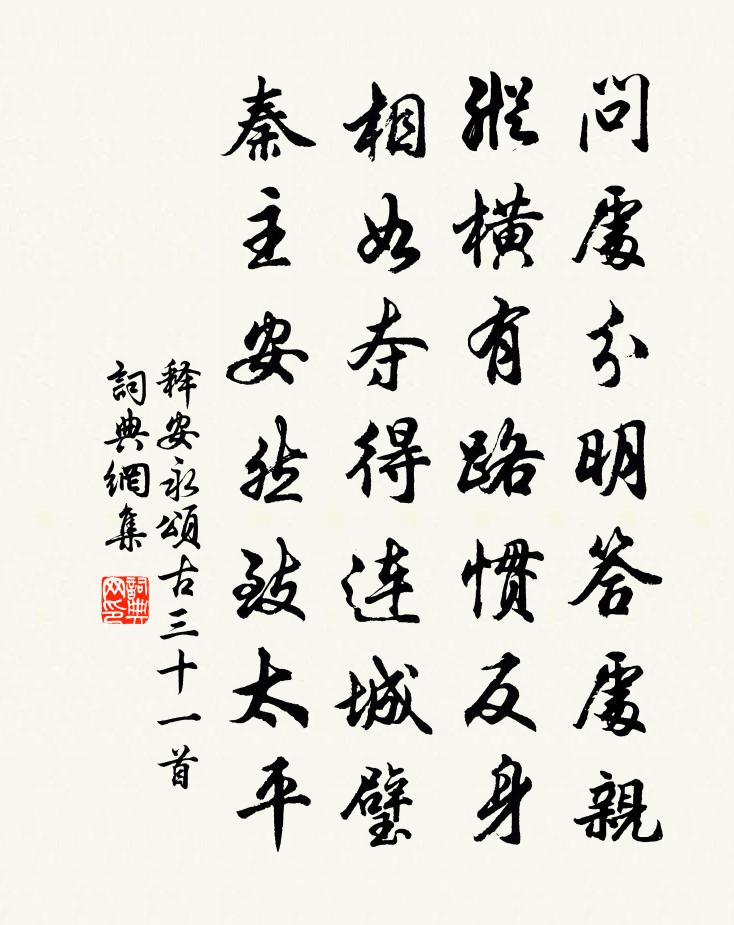 問處分明答處親
縱橫有路慣反身
相如夺得連城璧
秦主安然致太平
释安永頌古三十一首
詞典網集
詞典网印